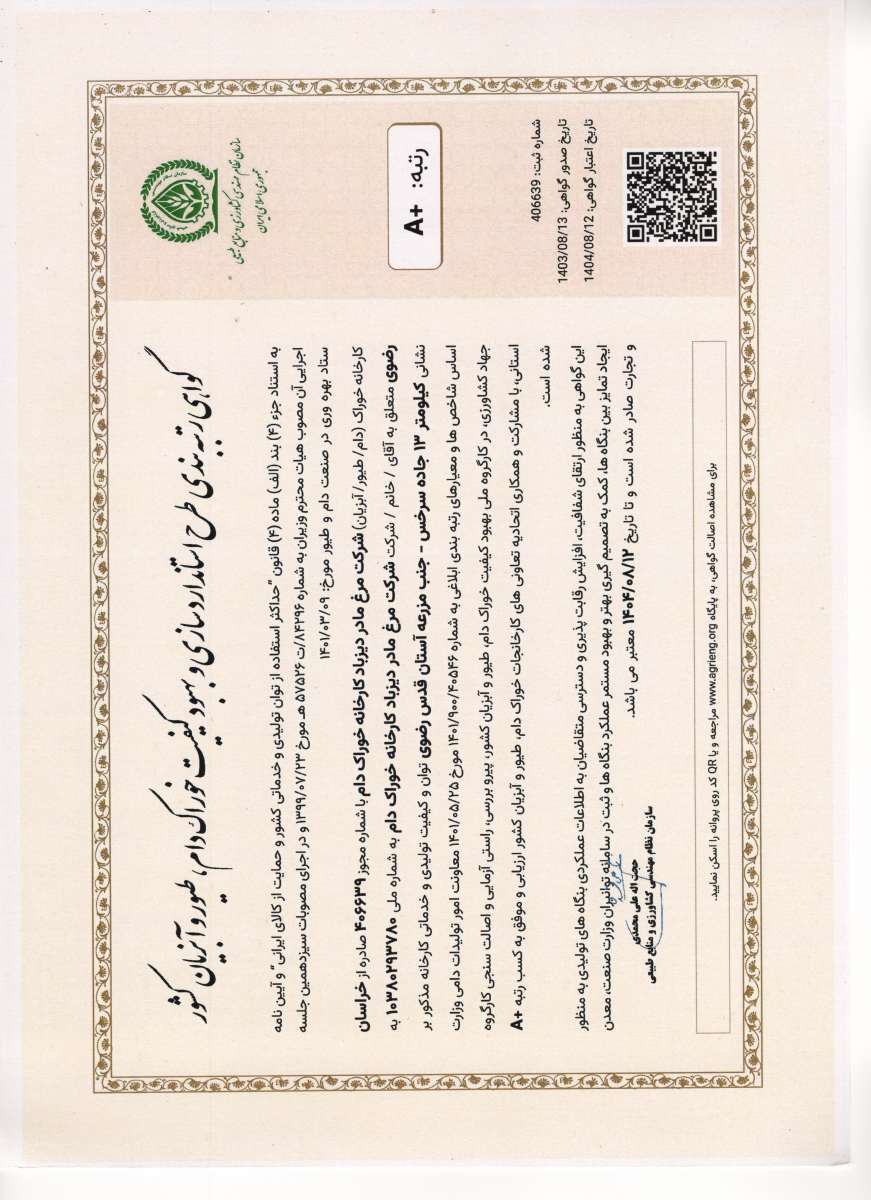 گواهی رتبه بندی طرح استانداردسازی و بهبود کیفیت خوراک دام، طیور و آبزیان کشور
سازمان نظام مهندسی کشاورزی و منابع طبیعی
جمهوری اسلامی ایران
رتبه: A+
شماره ثبت: 406639
تاریخ صدور گواهی: 1403/08/13
تاریخ اعتبار گواهی: 1404/08/12
به استناد جزء (۴) بند (الف) ماده (۴) قانون "حداکثر استفاده از توان تولیدی و خدماتی کشور و حمایت از کالای ایرانی" و آیین نامه
اجرایی آن مصوب هیات محترم وزیران به شماره ۸۴۲۹۶/ت ۵۷۵۲۶ هـ مورخ ۱۳۹۹/۰۷/۲۳ و در اجرای مصوبات سیزدهمین جلسه
ستاد بهره وری در صنعت دام و طیور مورخ: ۱۴۰۱/۰۳/۰۹
کارخانه خوراک (دام/ طیور/ آبزیان) شرکت مرغ مادر دیزباد کارخانه خوراک دام با شماره مجوز ۴۰۶۶۳۹ صادره از خراسان
رضوی متعلق به آقای / خانم / شرکت شرکت مرغ مادر دیزباد کارخانه خوراک دام به شماره ملی ۱۰۳۸۰۲۹۳۷۸۰ به
نشانی کیلومتر ۱۳ جاده سرخس - جنب مزرعه آستان قدس رضوی توان و کیفیت تولیدی و خدماتی کارخانه مذکور بر
اساس شاخص ها و معیارهای رتبه بندی ابلاغی به شماره ۱۴۰۱/۹۰۰/۴۰۵۴۶ مورخ ۱۴۰۱/۰۵/۲۵ معاونت امور تولیدات دامی وزارت
جهاد کشاورزی، در کارگروه ملی بهبود کیفیت خوراک دام، طیور و آبزیان کشور، پیرو بررسی، راستی آزمایی و اصالت سنجی کارگروه
استانی، با مشارکت و همکاری اتحادیه تعاونی های کارخانجات خوراک دام، طیور و آبزیان کشور ارزیابی و موفق به کسب رتبه A+
شده است.
این گواهی به منظور ارتقای شفافیت، افزایش رقابت پذیری و دسترسی متقاضیان به اطلاعات عملکردی بنگاه های تولیدی به منظور
ایجاد تمایز بین بنگاه ها، کمک به تصمیم گیری بهتر و بهبود مستمر عملکرد بنگاه ها و ثبت در سامانه توانیران وزارت صنعت، معدن
و تجارت صادر شده است و تا تاریخ ۱۴۰۴/۰۸/۱۲ معتبر می باشد.
حجت اله علی محمدی
سازمان نظام مهندسی کشاورزی و منابع طبیعی
برای مشاهده اصالت گواهی، به پایگاه www.agrieng.org مراجعه و یا QR کد روی پروانه را اسکن نمایید.